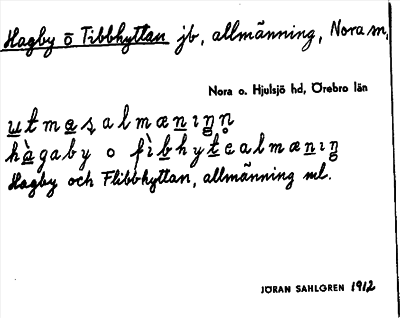 Hagby o Tibbhyttan jb, allmänning, Nora m,
Nora o. Hjulsjö hd, Örebro län
utmasalmænıŋŋ
hàgaby o fìbhytealmænıŋ
Hagby och Flibbhyttan, allmänning ml.
JÖRAN SAHLGREN 1912